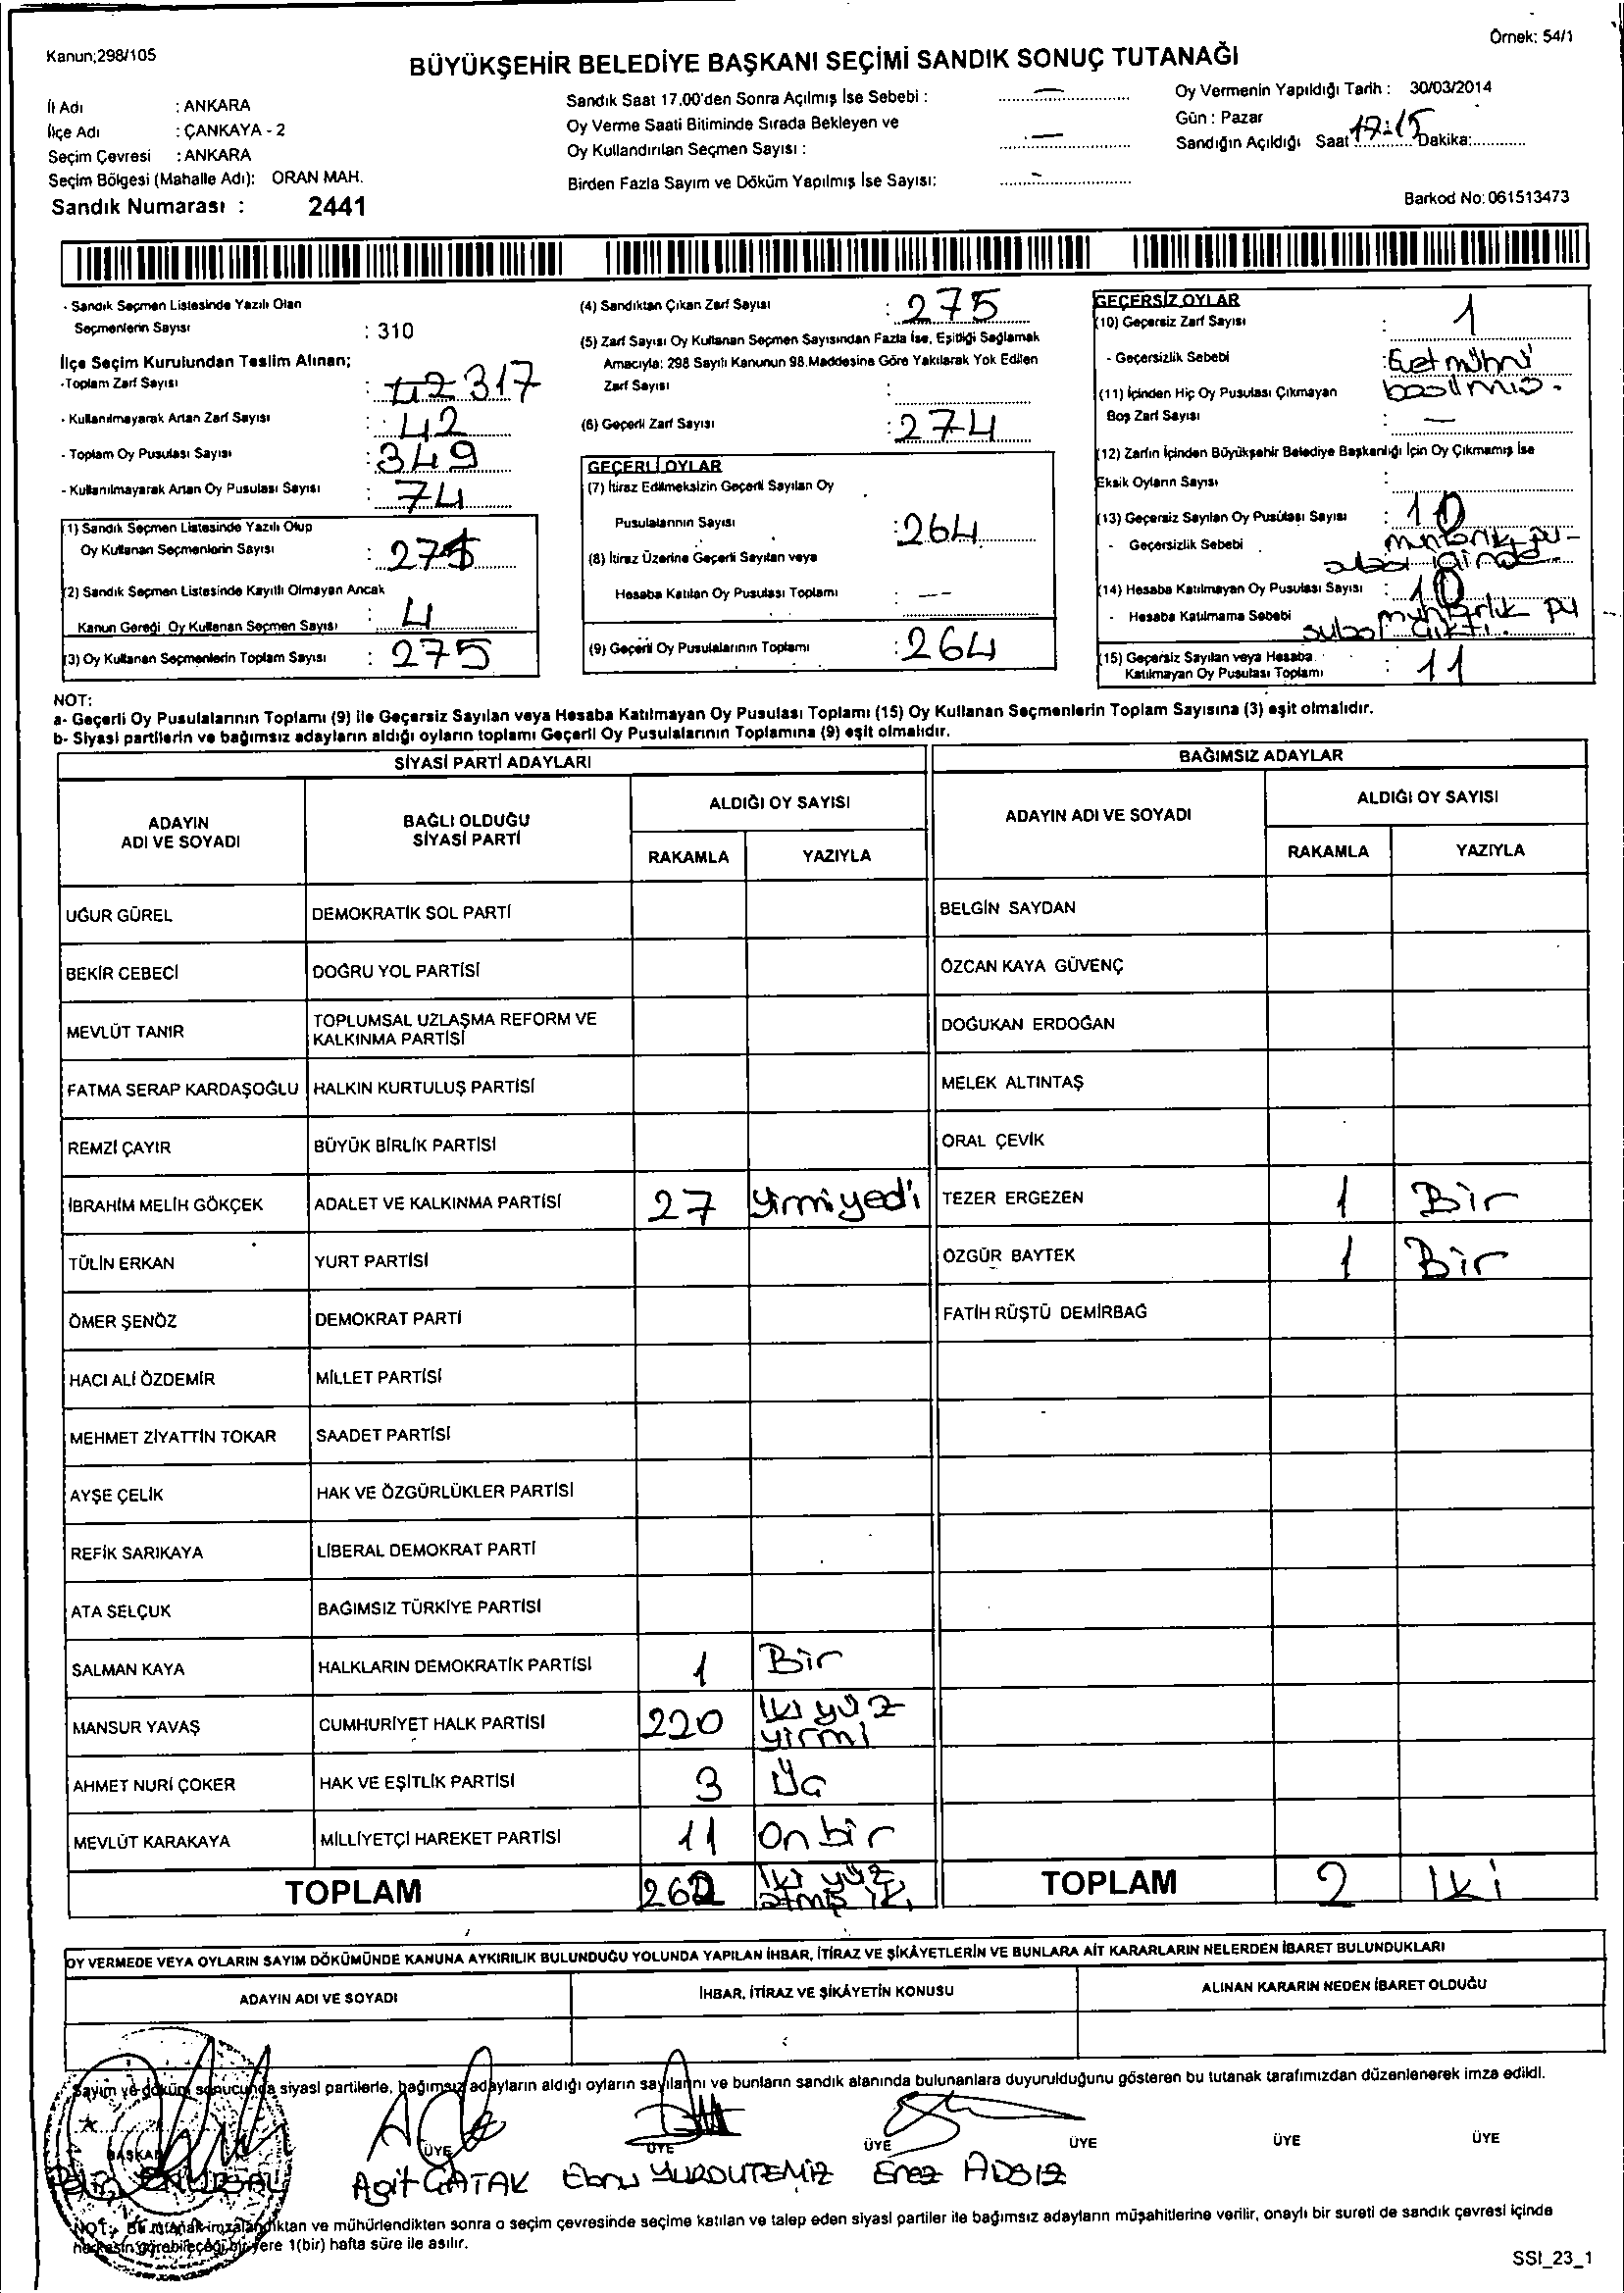 Kanun;298/105
Örnek: 54/1
BÜYÜKŞEHİR BELEDİYE BAŞKANI SEÇİMİ SANDIK SONUÇ TUTANAĞI
İl Adı : ANKARA
İlçe Adı : ÇANKAYA - 2
Seçim Çevresi : ANKARA
Seçim Bölgesi (Mahalle Adı): ORAN MAH.
Sandık Numarası : 2441
Sandık Saat 17.00'den Sonra Açılmış İse Sebebi : —
Oy Verme Saati Bitiminde Sırada Bekleyen ve
Oy Kullandırılan Seçmen Sayısı : —
Birden Fazla Sayım ve Döküm Yapılmış İse Sayısı: -
Oy Vermenin Yapıldığı Tarih : 30/03/2014
Gün : Pazar
Sandığın Açıldığı Saat 17:15 Dakika:
Barkod No: 061513473
- Sandık Seçmen Listesinde Yazılı Olan
Seçmenlerin Sayısı : 310
İlçe Seçim Kurulundan Teslim Alınan;
-Toplam Zarf Sayısı : 42 317
- Kullanılmayarak Artan Zarf Sayısı : 42
- Toplam Oy Pusulası Sayısı : 349
- Kullanılmayarak Artan Oy Pusulası Sayısı : 74
(1) Sandık Seçmen Listesinde Yazılı Olup
Oy Kullanan Seçmenlerin Sayısı :
(2) Sandık Seçmen Listesinde Kayıtlı Olmayan Ancak
Kanun Gereği Oy Kullanan Seçmen Sayısı : 4
(3) Oy Kullanan Seçmenlerin Toplam Sayısı : 275
(4) Sandıktan Çıkan Zarf Sayısı : 275
(5) Zarf Sayısı Oy Kullanan Seçmen Sayısından Fazla İse, Eşitliği Sağlamak
Amacıyla; 298 Sayılı Kanunun 98.Maddesine Göre Yakılarak Yok Edilen
Zarf Sayısı :
(6) Geçerli Zarf Sayısı : 274
GEÇERLİ OYLAR
(7) İtiraz Edilmeksizin Geçerli Sayılan Oy
Pusulalarının Sayısı : 264
(8) İtiraz Üzerine Geçerli Sayılan veya
Hesaba Katılan Oy Pusulası Toplamı : --
(9) Geçerli Oy Pusulalarının Toplamı : 264
GEÇERSİZ OYLAR
(10) Geçersiz Zarf Sayısı : 1
- Geçersizlik Sebebi : Evet mührü
basılmış.
(11) İçinden Hiç Oy Pusulası Çıkmayan
Boş Zarf Sayısı : —
(12) Zarfın İçinden Büyükşehir Belediye Başkanlığı İçin Oy Çıkmamış İse
Eksik Oyların Sayısı :
(13) Geçersiz Sayılan Oy Pusulası Sayısı : 10
- Geçersizlik Sebebi muhtarlık pu-
sulası içinde
(14) Hesaba Katılmayan Oy Pusulası Sayısı : 10
- Hesaba Katılmama Sebebi muhtarlık pu
sulası çıktı.
(15) Geçersiz Sayılan veya Hesaba
Katılmayan Oy Pusulası Toplamı : 11
NOT:
a- Geçerli Oy Pusulalarının Toplamı (9) ile Geçersiz Sayılan veya Hesaba Katılmayan Oy Pusulası Toplamı (15) Oy Kullanan Seçmenlerin Toplam Sayısına (3) eşit olmalıdır.
b- Siyasi partilerin ve bağımsız adayların aldığı oyların toplamı Geçerli Oy Pusulalarının Toplamına (9) eşit olmalıdır.
SİYASİ PARTİ ADAYLARI
BAĞIMSIZ ADAYLAR
ADAYIN ADI VE SOYADI
BAĞLI OLDUĞU SİYASİ PARTİ
ALDIĞI OY SAYISI
RAKAMLA YAZIYLA
ADAYIN ADI VE SOYADI
ALDIĞI OY SAYISI
RAKAMLA YAZIYLA
UĞUR GÜREL DEMOKRATİK SOL PARTİ BELGİN SAYDAN
BEKİR CEBECİ DOĞRU YOL PARTİSİ ÖZCAN KAYA GÜVENÇ
MEVLÜT TANIR TOPLUMSAL UZLAŞMA REFORM VE KALKINMA PARTİSİ DOĞUKAN ERDOĞAN
FATMA SERAP KARDAŞOĞLU HALKIN KURTULUŞ PARTİSİ MELEK ALTINTAŞ
REMZİ ÇAYIR BÜYÜK BİRLİK PARTİSİ ORAL ÇEVİK
İBRAHİM MELİH GÖKÇEK ADALET VE KALKINMA PARTİSİ 27 yirmiyedi TEZER ERGEZEN 1 Bir
TÜLİN ERKAN YURT PARTİSİ ÖZGÜR BAYTEK 1 Bir
ÖMER ŞENÖZ DEMOKRAT PARTİ FATİH RÜŞTÜ DEMİRBAĞ
HACI ALİ ÖZDEMİR MİLLET PARTİSİ
MEHMET ZİYATTİN TOKAR SAADET PARTİSİ
AYŞE ÇELİK HAK VE ÖZGÜRLÜKLER PARTİSİ
REFİK SARIKAYA LİBERAL DEMOKRAT PARTİ
ATA SELÇUK BAĞIMSIZ TÜRKİYE PARTİSİ
SALMAN KAYA HALKLARIN DEMOKRATİK PARTİSİ 1 Bir
MANSUR YAVAŞ CUMHURİYET HALK PARTİSİ 220 İki yüz yirmi
AHMET NURİ ÇOKER HAK VE EŞİTLİK PARTİSİ 3 Üç
MEVLÜT KARAKAYA MİLLİYETÇİ HAREKET PARTİSİ 11 On bir
TOPLAM 262 İki yüz atmış iki TOPLAM 2 İki
OY VERMEDE VEYA OYLARIN SAYIM DÖKÜMÜNDE KANUNA AYKIRILIK BULUNDUĞU YOLUNDA YAPILAN İHBAR, İTİRAZ VE ŞİKÂYETLERİN VE BUNLARA AİT KARARLARIN NELERDEN İBARET BULUNDUKLARI
ADAYIN ADI VE SOYADI İHBAR, İTİRAZ VE ŞİKÂYETİN KONUSU ALINAN KARARIN NEDEN İBARET OLDUĞU
Sayım ve döküm sonucunda siyasi partilerle, bağımsız adayların aldığı oyların sayılarını ve bunların sandık alanında bulunanlara duyurulduğunu gösteren bu tutanak tarafımızdan düzenlenerek imza edildi.
BAŞKAN ÜYE ÜYE ÜYE ÜYE ÜYE ÜYE
Agit ÇATAK Ebru YURDUTEMİZ Enez ADSIZ
NOT: Bu tutanak imzalandıktan ve mühürlendikten sonra o seçim çevresinde seçime katılan ve talep eden siyasi partiler ile bağımsız adayların müşahitlerine verilir, onaylı bir sureti de sandık çevresi içinde
herkesin görebileceği bir yere 1(bir) hafta süre ile asılır.
SSI_23_1